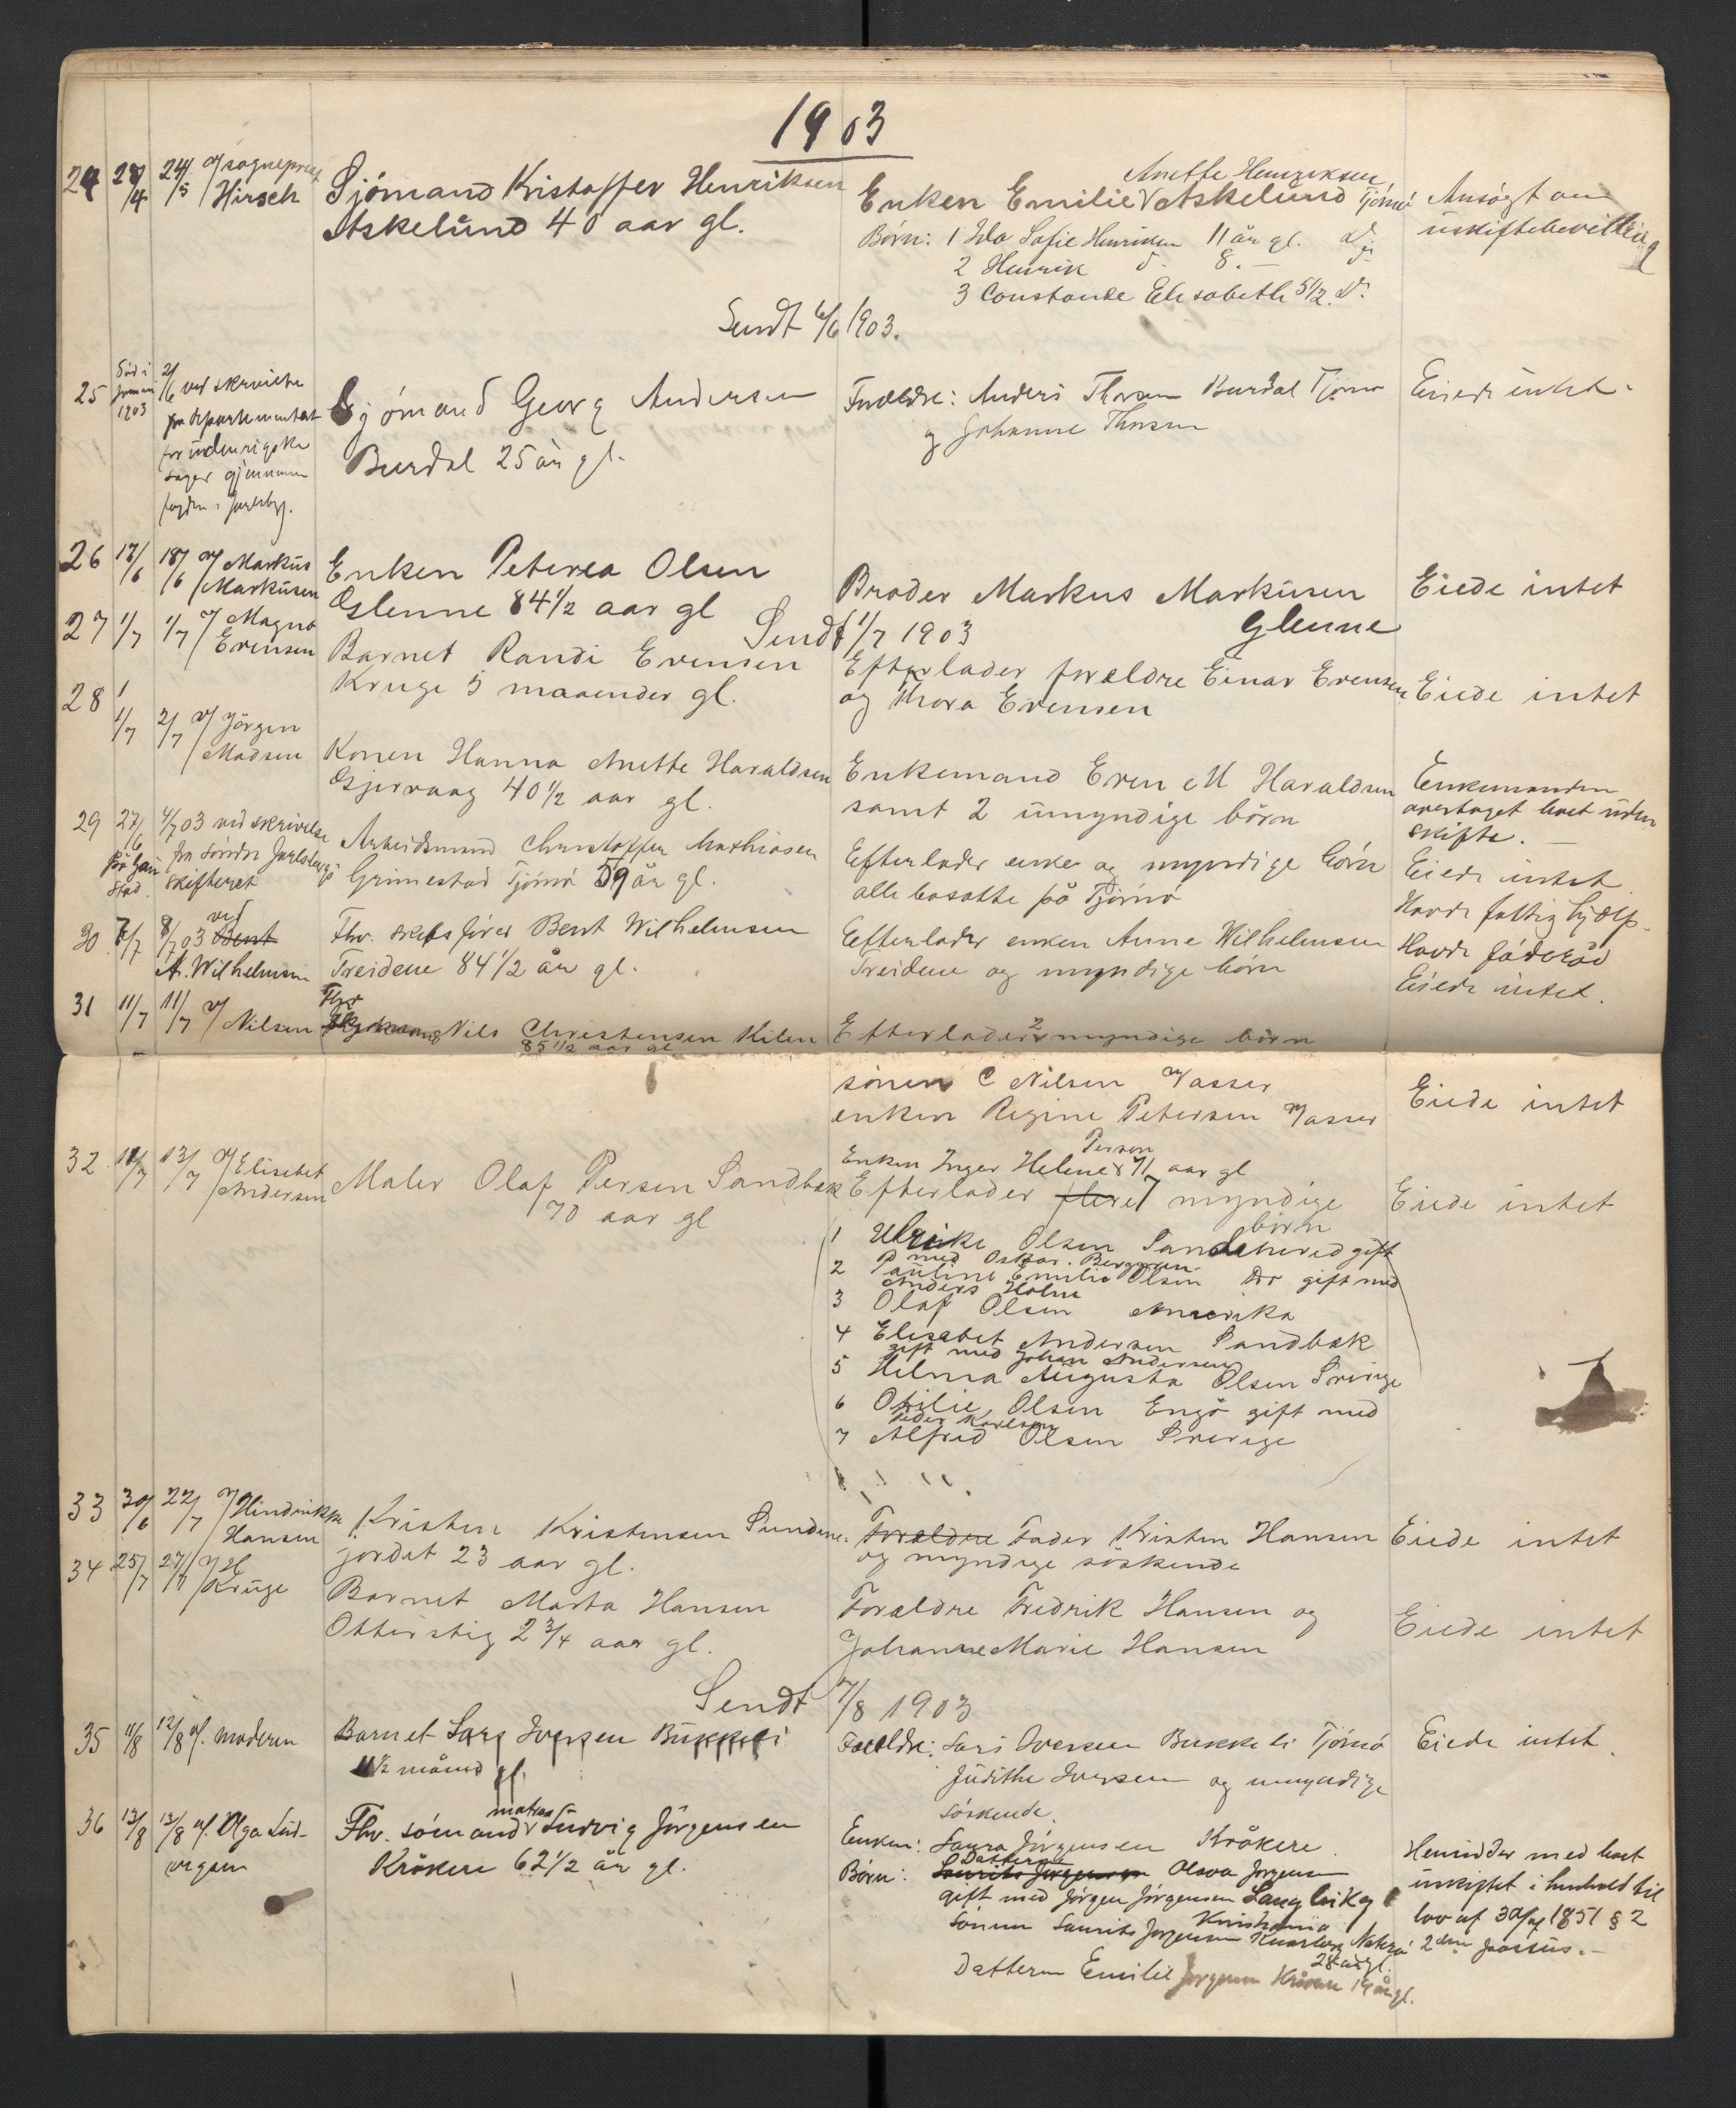 1903
24 28/4 24/5 v/ sogneprest
Hirsch
Sjömand Kristoffer Henriksen
Askelund 40 aar gl.
Anette Henriksen
Enken Emilie Askelund Tjömö
Børn: 1 Ida Sofie Henriksen 11 år gl.
2 Henrik 8.
3 Constance Elisabeth 5 1/2
Ansøgt om
uskiftebevilling
Sendt 6/6 1903.
25 Död i
januari
1903
2/6 ved skrivelse
fra departementet
for udenrigske
sager gjennem
fogden i Jarlsberg.
Sjömand Georg Andersen
Burdal 25 år gl.
Forældre: Anders Thorsen Burdal Tjömö
og Johanne Thorsen
Eiede intet.
26 17/6 18/6 v/ Markus
Markusen
Enken Peterea Olsen
Glenne 84 1/2 aar gl
Broder Markus Markusen
Glenne
Eiede intet
Sendt 1/7 1903
27 1/7 1/7 v/ Magna
Evensen
Barnet Randi Evensen
Kruge 5 maaneder gl.
Efterlader forældre Einar Evensen
og Thora Evensen
Eiede intet
28 1/7 2/7 v/ Jörgen
Madsen
Konen Hanna Anette Haraldsen
Gjervaag 40 1/2 aar gl.
Enkemand Even M Haraldsen
samt 2 umyndige börn
Enkemanden
overtaget boet uden
skifte.
29 27/6 4/7 03 ved skrivelse
på Gaustad. fra söndre Jarlsbergs
skifteret
Arbeidsmand Christoffer Mathiasen
Grimestad Tjömö 59 år gl.
Efterlader enke og myndige börn
alle bosatte på Tjömö
Eiede intet.
Havde fattighjælp.
30 7/7 8/7 03 ved
Bent
A. Wilhelmsen
Fhv. skibsfører Bent Wilhelmsen
Treidene 84 1/2 år gl.
Efterlader enken Anne Wilhelmsen
Treidene og myndige børn
Havde föderåd
Eiede intet.
31 11/7 11/7 v/ Nilsen
Fhv
Nils Christensen Kilen
85 1/2 aar gl
Efterlader 2 myndige börn
sönen C Nilsen Vasser
enken Regine Petersen Vasser
Eiede intet
32 12/7 13/7 v/ Elisebet
Andersen
Maler Olaf Persen Sandbæk
70 aar gl
Person
Enken Inger Helene 71 aar gl
Efterlader flere 7 myndige
börn
Eiede intet
1 Ulrikke Olsen Sandehered gift
med Oskar Berggren
2 Pauline Emilie Olsen Do gift med
Anders Holm
3 Olaf Olsen Amerika
4 Elisabet Andersen Sandbæk
gift med Johan Andersen
5 Helma Augusta Olsen Sverige
6 Otilie Olsen Engö gift med
Peder Karlsen
7 Alfred Olsen Sverige
33 30/6 22/7 v/ Hindrikke
Hansen
Kristen Kristensen Sundene
jordet 23 aar gl.
Forældre Fader Kristen Hansen
og myndige söskende
Eiede intet
34 25/7 27/7 v/ H
Kruge
Barnet Marta Hansen
Otterstig 2 3/4 aar gl.
Forældre Fredrik Hansen og
Johanne Marie Hansen
Eiede intet
Sendt 7/8 1903
35 11/8 12/8 v/. moderen
Barnet Lars Iversen Bukkeli
11 1/2 måned gl.
Forældre: Lars Iversen Bukkeli Tjömö
Judithe Iversen og umyndige
söskende.
Eiede intet.
36 13/8 13/8 v/. Olga Lud-
vigsen
Fhv. sömand matros Ludvig Jörgensen
Kråkere 62 1/2 år gl.
Enken: Laura Jörgensen Kråkere
Datteren
Børn: Laurits Jörgensen Olava Jörgensen
gift med Jörgen Jörgensen Langvik og
Kristiania
Sönnen Laurits Jörgensen Nøtterö
28 år gl.
Datteren Emilie Jörgensen Kråkere 19 år gl.
Hensidder med boet
uskiftet i henhold til
lov af 30/7 1851 § 2
2den passus.